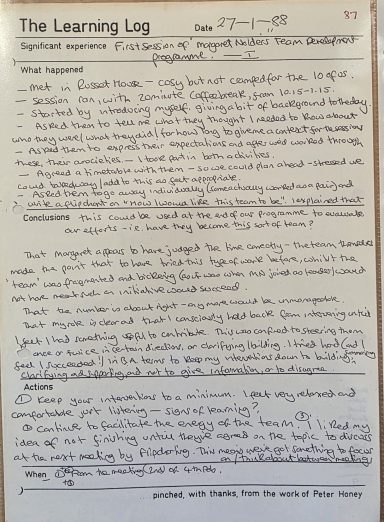 87
The Learning Log
Date 27-1-88
Significant experience First session of 'Margaret Nelder's Team Development
programme. — I
What happened
— Met in Russet House — cosy but not cramped for the 10 of us.
— Session ran, with 20 minute coffee break, from 10.15-1.15.
— Started by introducing myself, giving a bit of background to the day.
— Asked them to tell me what they thought I needed to know about
who they were/what they did/for how long to give me a context for the sessions
— Asked them to express their expectations and after we'd worked through
these, their anxieties. — I took part in both activities.
— Agreed a timetable with them — so we could plan ahead — stressed we
could take away/add to this as felt appropriate.
— Asked them to go away individually (some actually worked as a pair) and
write a flipchart on "How I would like this team to be". I explained that
Conclusions this could be used at the end of our programme to evaluate
our efforts — i.e. have they become this sort of team?
That Margaret appears to have judged the time correctly — the team themselves
made the point that to have tried this type of work before, whilst the
'team' was fragmented and bickering (as it was when MN joined as leader) would
not have meant such an initiative would succeed.
That the number is about right — any more would be unmanageable.
That my role is clear and that I consciously held back from intervening until
I felt I had something useful to contribute. This was confined to steering them
once or twice in certain directions, or clarifying/building. I tried hard (and I
feel I succeeded!) in BA terms to keep my interventions down to building, summarising
clarifying and supporting and not to give information, or to disagree.
Actions
① Keep your interventions to a minimum. I felt very relaxed and
comfortable just listening — signs of learning?
② Continue to facilitate the energy of the team. ③ I liked my
idea of not finishing until they've agreed on the topic to discuss
at the next meeting by flipcharting. This means we've got something to focus
on/think about between meetings
When ① From the meeting (2nd) of 4th Feb.
....pinched, with thanks, from the work of Peter Honey